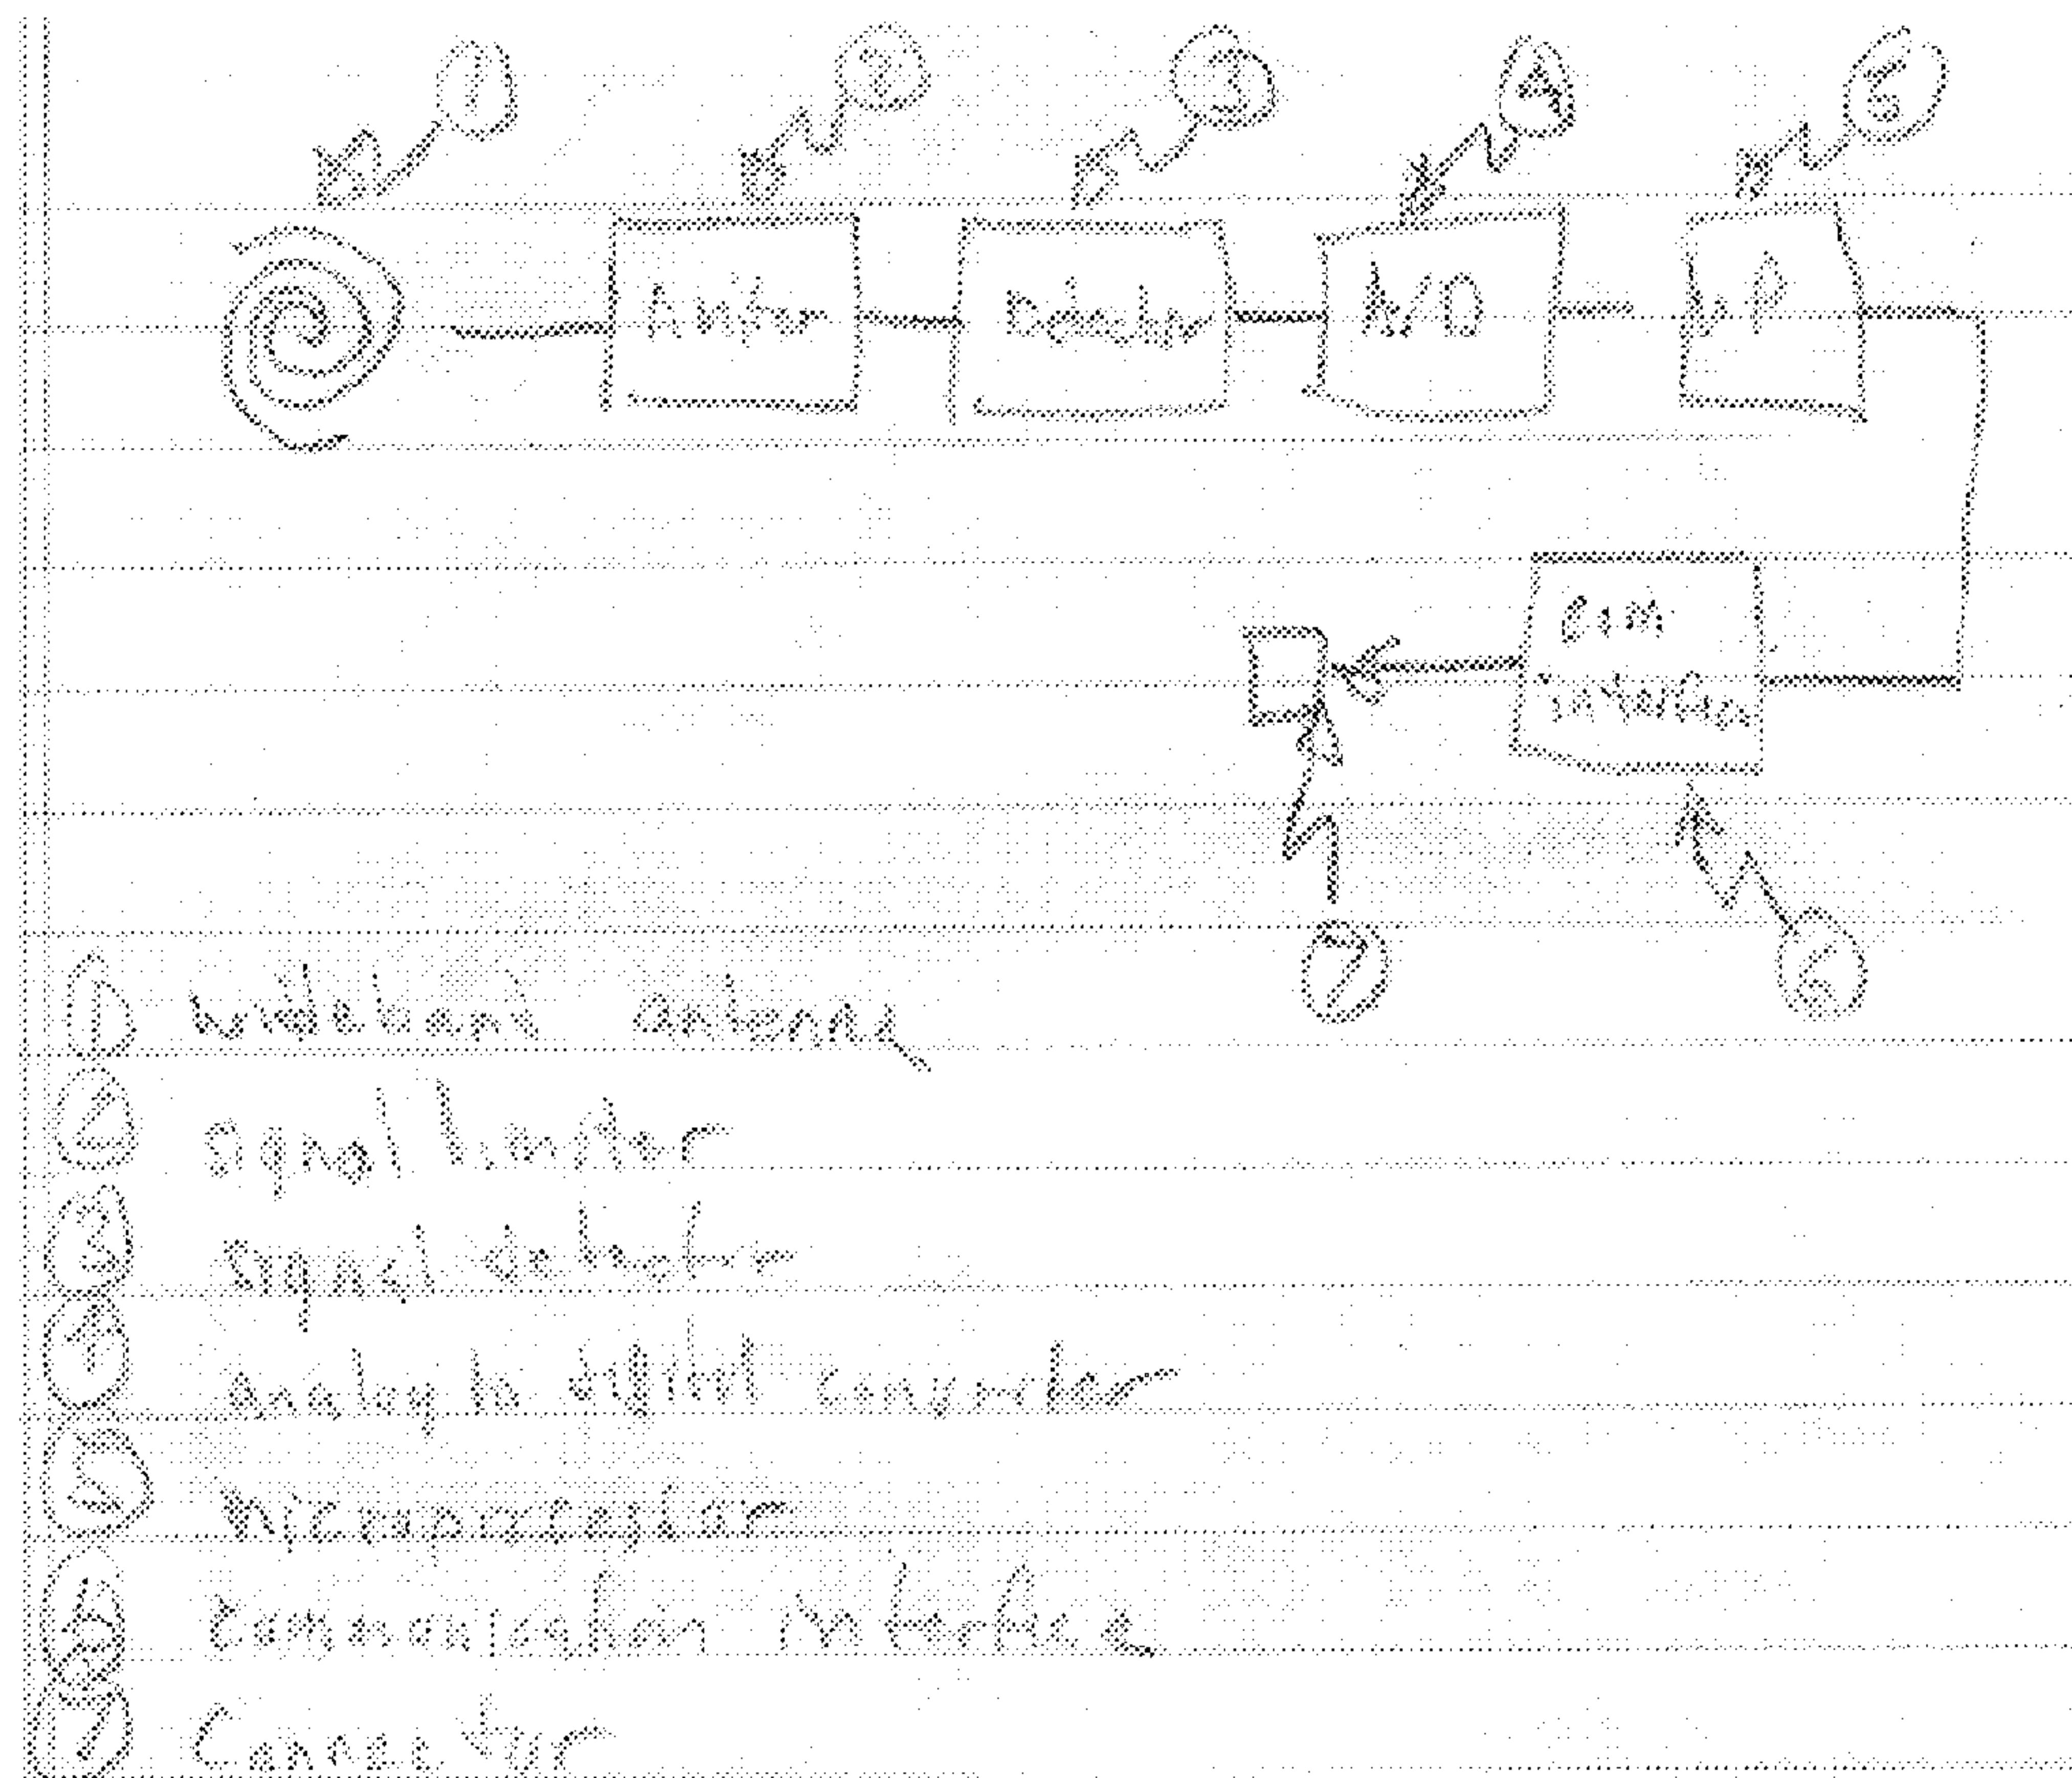 ① ② ③ ④ ⑤
Detector A/D μP
com
interface
⑦ ⑥
① wideband antenna
② signal limiter
③ signal detector
④ analog to digital converter
⑤ microprocessor
⑥ communication interface
⑦ Connector